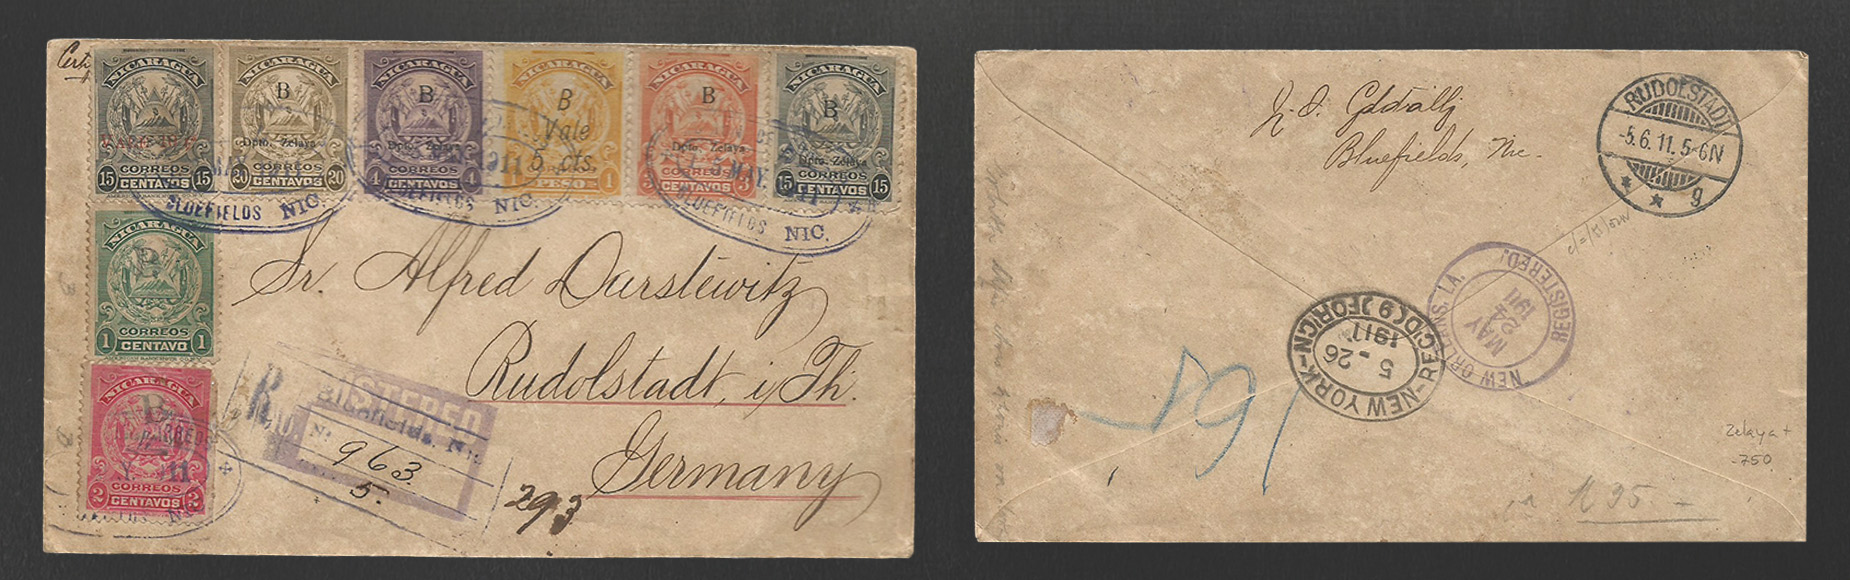 NICARAGUA
CORREOS
15 15
CENTAVOS
NICARAGUA
B
Dpto. Zelaya
CORREOS
20 20
CENTAVOS
NICARAGUA
B
Dpto. Zelaya
CORREOS
4 4
CENTAVOS
NICARAGUA
B
Vale
5 cts.
PESO 1
NICARAGUA
B
Dpto. Zelaya
CORREOS
3
CENTAVOS
NICARAGUA
B
Dpto. Zelaya
CORREOS
15 15
CENTAVOS
BLUEFIELDS NIC.
BLUEFIELDS NIC.
MAY.
BLUEFIELDS NIC.
NICARAGUA
B
CORREOS
1 1
CENTAVO
NICARAGUA
B
CORREOS
2 2
CENTAVOS
11
Sr. Alfred Darstewitz
Rudolstadt, i/Th.
Germany
R
REGISTERED
Bluefields, Nic.
No.
963
5.
293
Bluefields, Nic.
RUDOLSTADT
-5.6.11.5-6N
* * * g
NEW ORLEANS, LA.
MAY
24
1911
REGISTERED.
NEW YORK-REC'D(9)FOREIGN
5-26
1911
Zelaya +
-750